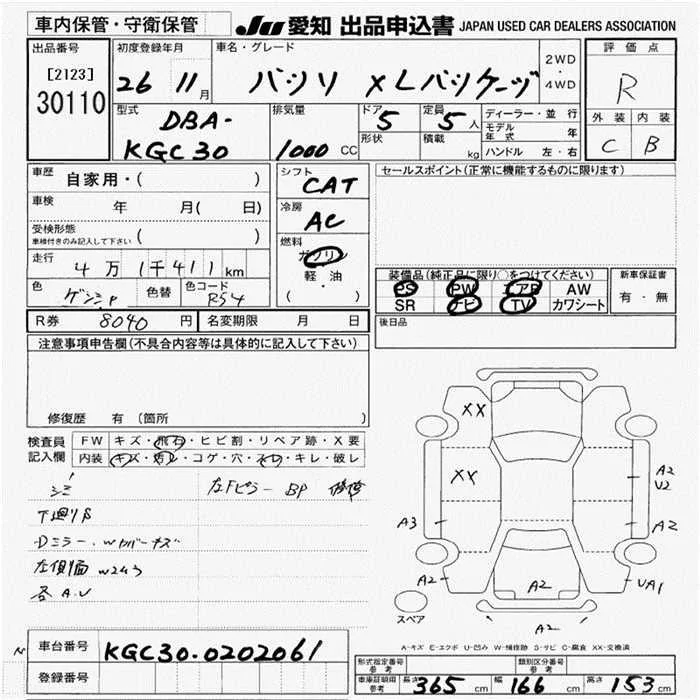 車内保管・守衛保管
JU 愛知 出品申込書 JAPAN USED CAR DEALERS ASSOCIATION
出品番号
[2123]
30110
初度登録年月
26 11月
車名・グレード
パッソ XLパッケージ
2WD
・
4WD
評価点
R
外装 内装
C B
型式
DBA-
KGC30
排気量
1000 CC
ドア 5
形状
定員 5人
積載 kg
ディーラー・並行
モデル年式 年
ハンドル 左・右
車歴 自家用・( )
車検 年 月( 日)
受検形態
車検付きのみ記入して下さい ( )
走行 4万1千411km
色 色替 色コード R54
シフト
CAT
冷房
AC
燃料
ガソリン
軽・油
( ・ )
セールスポイント(正常に機能するものに限ります)
装備品(純正品に限り○をつけてください)
PS PW エアB AW
SR ナビ TV カワシート
新車保証書
有・無
後日品
R券 8040円 名変期限 月 日
注意事項申告欄(不具合内容等は具体的に記入して下さい)
修復歴 有(箇所 )
検査員
記入欄
FW キズ・飛石・ヒビ割・リペア跡・X要
内装 キズ・汚レ・コゲ・穴・スレ・キレ・破レ
左Fピラー BP 修復
下廻りサビ
Dミラー
左側面
各A.U
XX
XX
A3
A2
A2
A2
A2
U2
A2
UA1
スペア
A-キズ E-エクボ U-凹み W-補修跡 S-サビ C-腐食 XX-交換済
車台番号 KGC30-0202061
登録番号
形式指定番号
参考
類別区分番号
参考
車庫証明用
参考
長さ 365cm 幅 166cm 高さ 153cm